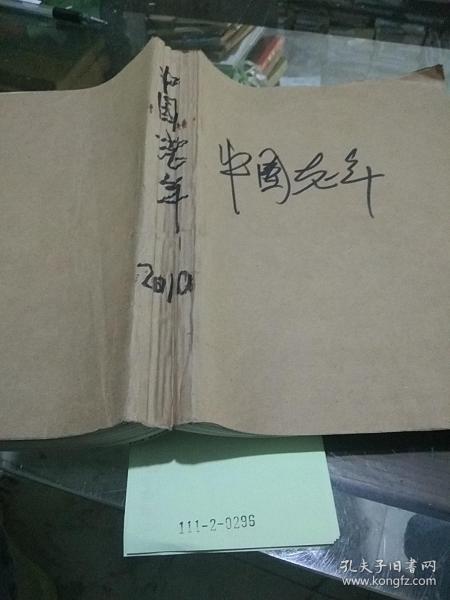 中国老年
2010
中国老年
111-2-0296
孔夫子旧书网
www.kongfz.com